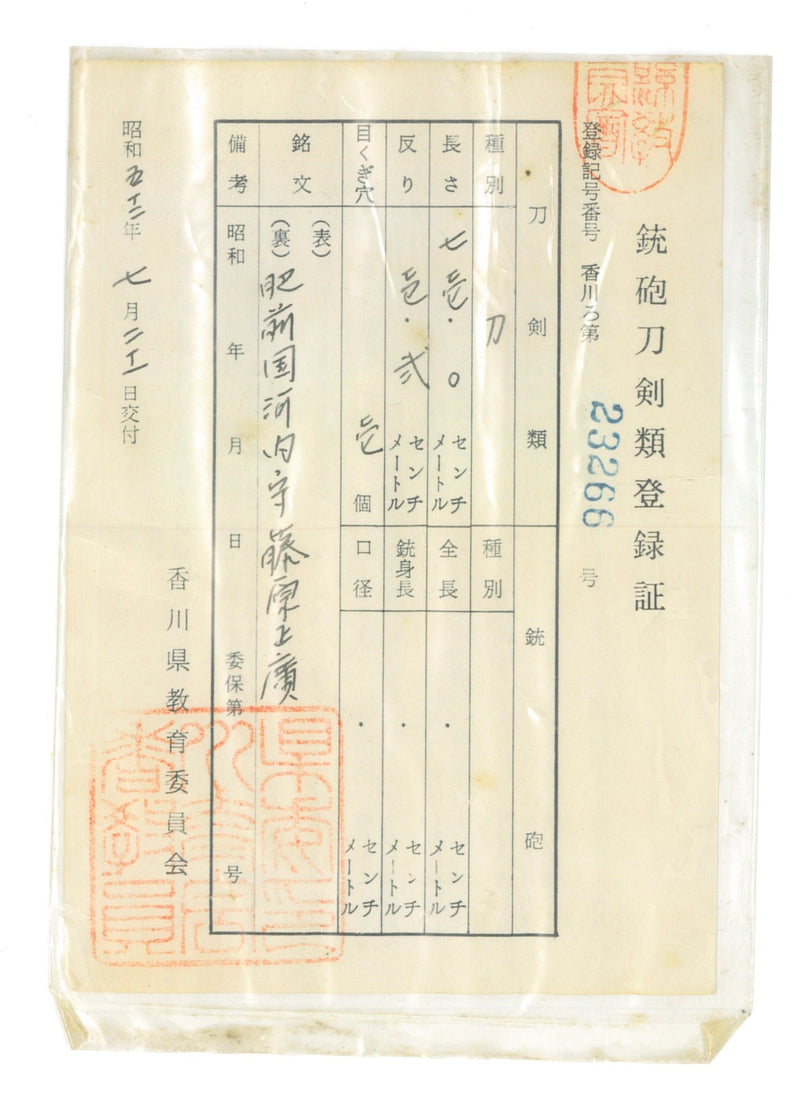 銃砲刀剣類登録証
登録記号番号 香川ろ第 23266 号
刀剣類
種別 刀
長さ 七壱.0 センチメートル
反り 壱.弐 センチメートル
目くぎ穴 壱個
銃砲
種別
全長 . センチメートル
銃身長 . センチメートル
口径 . センチメートル
銘文
(表)
(裏) 肥前国河内守藤原正廣
備考 昭和 年 月 日 委保第 号
昭和五十二年七月二十一日交付
香川県教育委員会